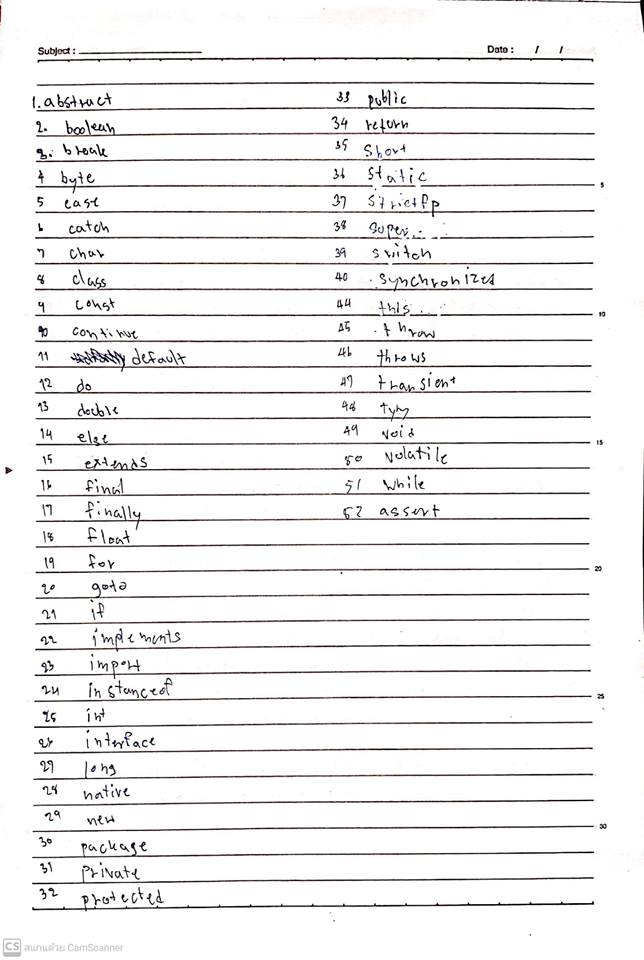 Subject :
Date : / /
1. abstract
2. boolean
3. break
4 byte
5 case
6 catch
7 char
8 class
9 const
10 continue
11 default
12 do
13 double
14 else
15 extends
16 final
17 finally
18 float
19 for
20 goto
21 if
22 implements
23 import
24 instanceof
25 int
26 interface
27 long
28 native
29 new
30 package
31 private
32 protected
33 public
34 return
35 short
36 static
37 strictfp
38 super
39 switch
40 synchronized
44 this
45 throw
46 throws
47 transient
48
49 void
50 volatile
51 while
52 assert
5
10
15
20
25
30
CS สแกนด้วย CamScanner